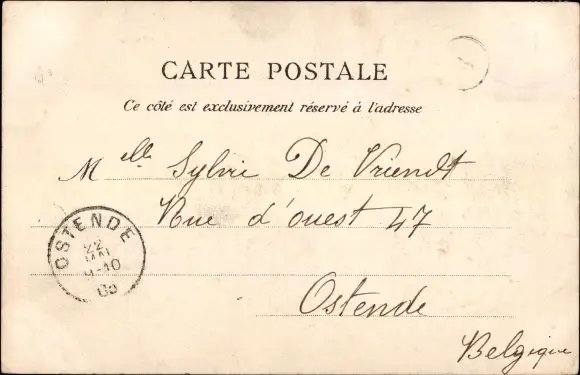 CARTE POSTALE
Ce côté est exclusivement réservé à l'adresse
Melle Sylvie De Vriendt
Rue d'ouest 47
Ostende
Belgique
OSTENDE
22